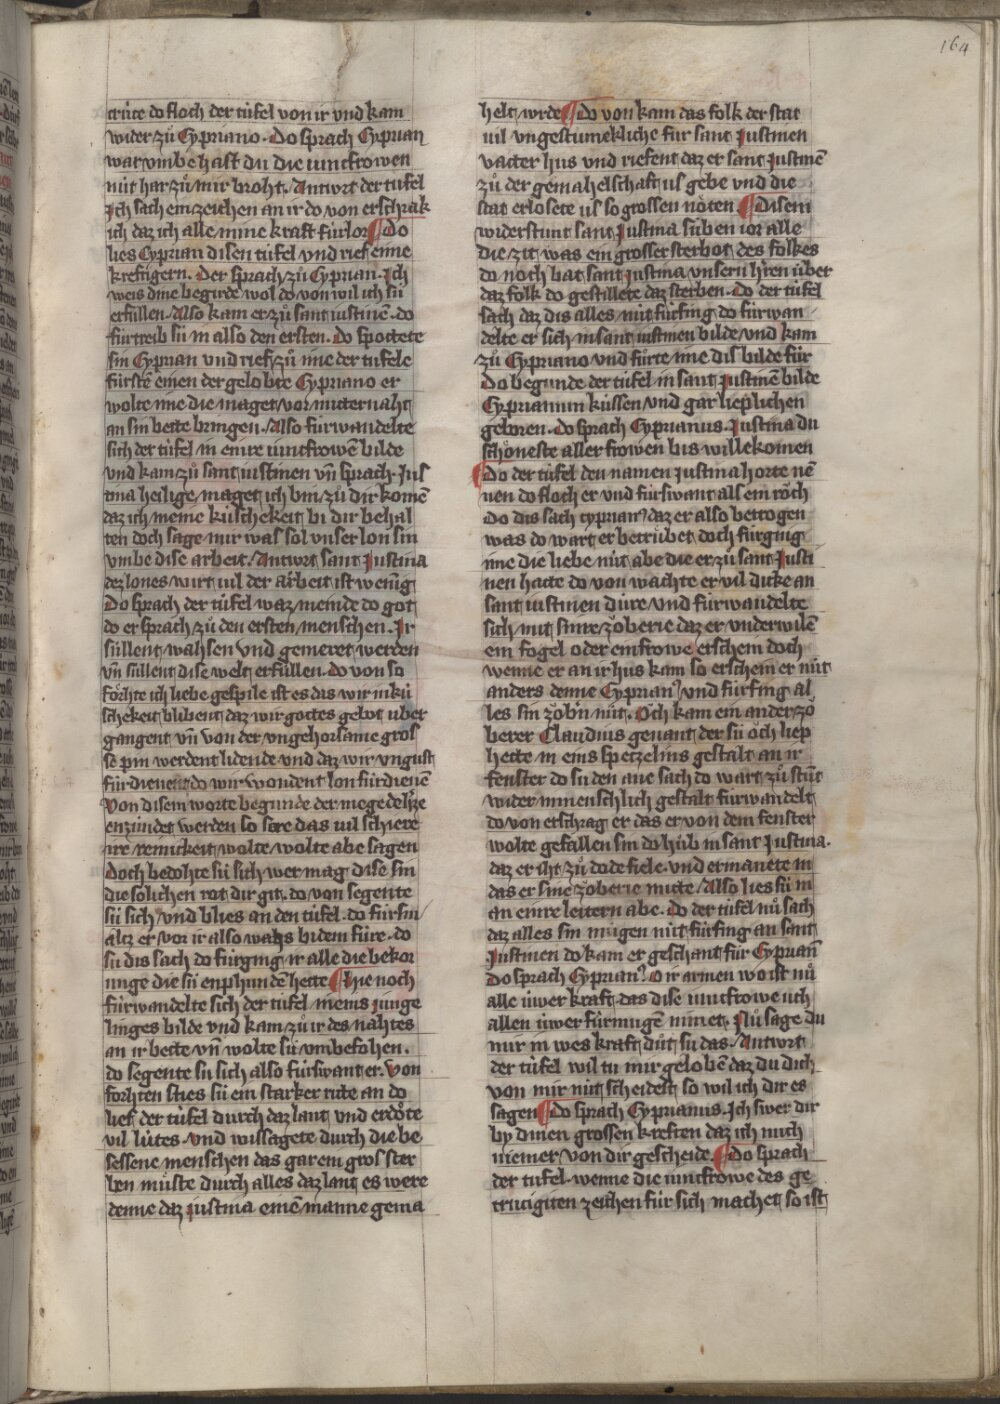 164
crùte do floch der tùfel von ir vnd kam
wider zů Cypriano. Do sprach Cyprian
war vmbe hast du die iuncfrowen
nùt har zů mir broht. Antwrt der tùfel
Ich sach ein zeichen an ir do von erschrak
ich daz ich alle mine kraft fùrlor ¶ Do
lies Cyprian disen tùfel vnd rief eime
kreftigern. Der sprach zů Cyprian. Ich
weis dine begirde wol do von wil ich sù
erfùllen. Also kam er zů sant iustinē. do
fùrtreib sù in also den ersten. Do spottete
sin Cyprian vnd rief zů ime der tufele
fùrstē einen der gelobte Cypriano er
wolte ime die maget vor mitternaht
an sin bette bringen. Also fùrwandelte
sich der tùfel in einre iuncfrowen bilde
vnd kam zů sant iustinen vn̄ sprach. Jus
tina heilige maget ich bin zů dir komē
daz ich meine kùschekeit bi dir behal
ten doch sage mir was sol vnser lon sin
vmbe dise arbeit. Antwrt sant Justina
dez lones wirt uil der arbeit ist wenig
Do sprach der tùfel waz meinde do got
do er sprach zů den ersten menschen. Ir
sùllent wahsen vnd gemeret werden
vn̄ sùllent dise welt erfùllen. do von so
fôrhte ich liebe gespile ist es dis wir in kù
schekeit blibent daz wir gottes gebot ùber
gangent vn̄ von der vngehorsame gros
se pin werdent lidende vnd daz wir vngust
fùrdienent do wir wondent lon fùrdienē
Von disem worte begunde der megede h̓ze
enzùndet werden so sere das uil schiere
ire reinikeit wolte wolte abe sagen
Doch bedohte sù sich wer mag dise sin
die solichen rot dir git. do von segente
sù sich vnd blies an den tùfel. do fùrsm
altz er vor ir also wahs bi dem fùre. do
sù dis sach do fùrging ir alle die bekor
unge die sù enphundē hette ¶ Hie noch
fùrwandelte sich der tùfel in eins junge
linges bilde vnd kam zů ir des nahtes
an ir bette vn̄ wolte sù vmbefohen.
do segente sù sich also fùrswant er. Von
forhten sties sù ein starker rite an do
lief der tùfel durch daz lant vnd erdôte
vil lùtes. vnd wissagete durch die be
sessene menschen das gar ein gros ster
ben mùste durch alles daz lant es were
denne daz justina einē manne gema
helt wrde ¶ do von kam das folk der stat
uil vngestumekliche fur sant Justinen
vatter hus vnd riefent daz er sant Justinē
zů der gemahelschaft us gebe vnd die
stat erlosete us so grossen nôten ¶ Disem
widerstunt sant Justina siben ior alle
die zit was ein grosser sterbot des folkes
do noch bat sant Justina vnsern h̓ren ùber
daz folk do gestillete daz sterben. Do der tùfel
sach daz dis alles nùt fùrfing do fùrwan
delte er sich in sant iustinen bilde vnd kam
zů Cypriano vnd fùrte ime dis bilde fùr
Do begunde der tùfel in sant Justinē bilde
Cyprianum kùssen vnd gar lieplichen
geboren. do sprach Cyprianus. Justina du
schôneste aller frowen bis willekomen
¶ Do der tùfel den namen justina horte nē
nen do floch er vnd fùrswant als ein rôch
Do dis sach cyprian᾽ daz er also betrogen
was do wart er betrùbet doch fùrging
ime die liebe nùt abe die er zů sant Justi
nen hatte do von wachte er vil dicke an
sant iustinen dùre vnd fùrwandelte
sich mit sinre zoberie daz er vnderwilē
ein fogel oder ein frowe erschein doch
wenne er an ir hus kam so erschein er nùt
anders denne Cyprian᾽ vnd fùrfing al
les sin zob̓n nùt. Och kam ein ander zo
berer Claudius genant der sù och liep
hette in eins spetzelins gestalt an ir
fenster do sù den ane sach do wart zů stūt
wider in menschlich gestalt fùrwandelt
do von erschrag er das er von dem fenster
wolte gefallen sin do hůb in sant Justina.
daz er iht zů dode fiele. vnd ermanete in
das er sine zoberie mitte. Also lies sù in
an einre leitern abe. Do der tùfel nů sach
daz alles sin mùgen nùt fùrfing an sant
Justinen do kam er geschant fùr Cyprianū
Do sprach Cyprian᾽. O ir armen wo ist nů
alle ùwer kraft das dise iuncfrowe uch
allen ùwer fùrmugē nimet. Nù sage du
mir in wes kraft dùt sù das. Antwrt
der tùfel wil tu mir gelobē daz du dich
von mir nùt scheidest so wil ich dir es
sagen ¶ Do sprach Cyprianus. Ich swer dir
by dinen grossen kreften daz ich mich
niemer von dir gescheide. ¶ Do sprach
der tufel. wenne die iuncfrowe des ge
crucigiten zeichen fùr sich machet so ist